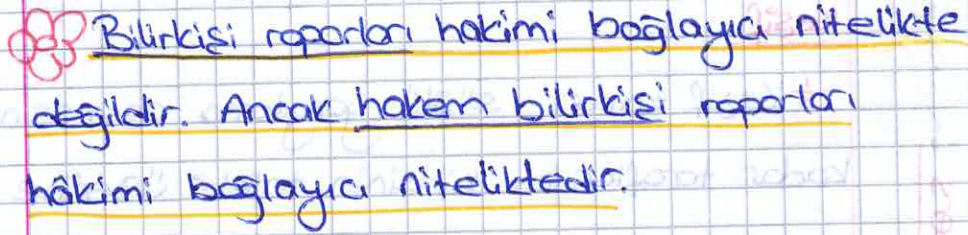 Bilirkişi raporları hakimi bağlayıcı nitelikte
değildir. Ancak hakem bilirkişi raporları
hâkimi bağlayıcı niteliktedir.